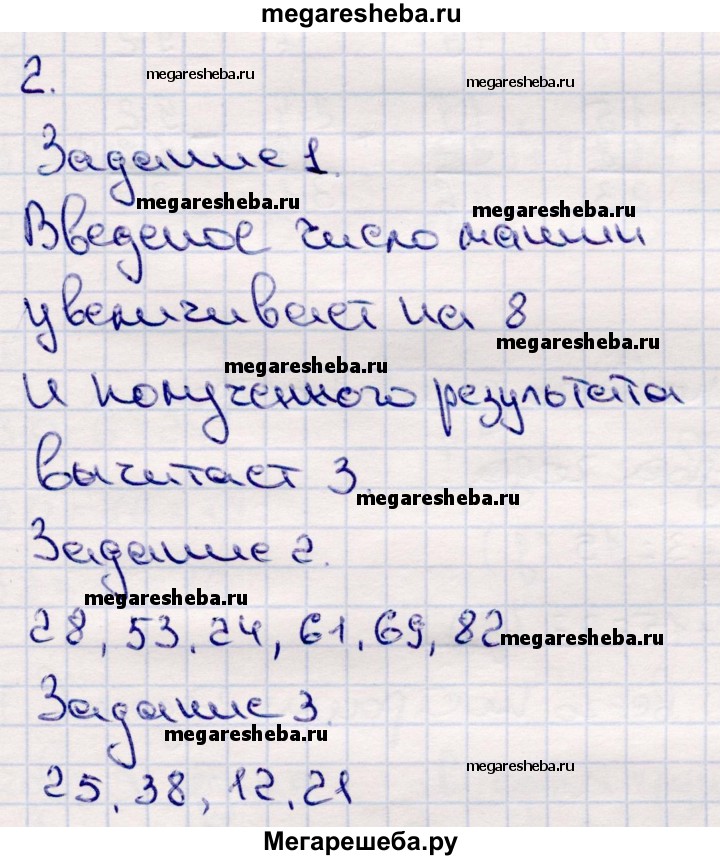 megaresheba.ru
2.
megaresheba.ru
megaresheba.ru
Задание 1.
megaresheba.ru
megaresheba.ru
Введеное число машин
увеличивает на 8
megaresheba.ru
megaresheba.ru
и полученного результата
вычитает 3.
megaresheba.ru
Задание 2.
megaresheba.ru
28, 53. 24, 61. 69, 82
megaresheba.ru
Задание 3.
megaresheba.ru
megaresheba.ru
25. 38, 12. 21
Мегарешеба.ру